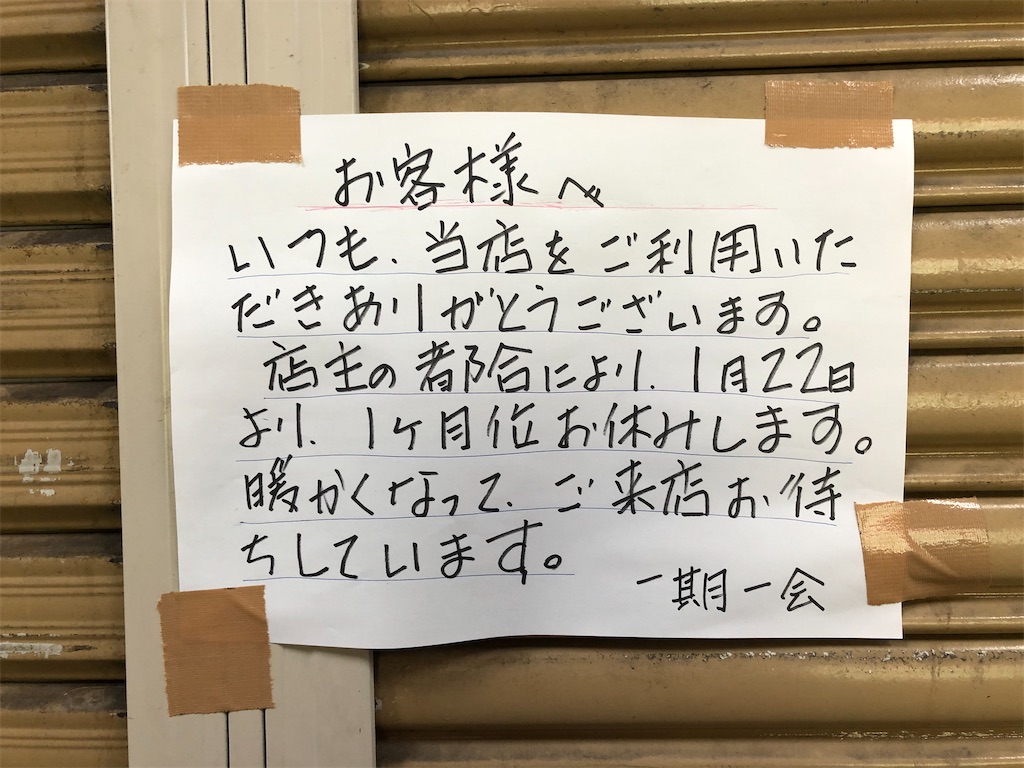 お客様へ
いつも、当店をご利用いた
だきありがとうございます。
店主の都合により、1月22日
より、1ヶ月位お休みします。
暖かくなって、ご来店お待
ちしています。
一期一会